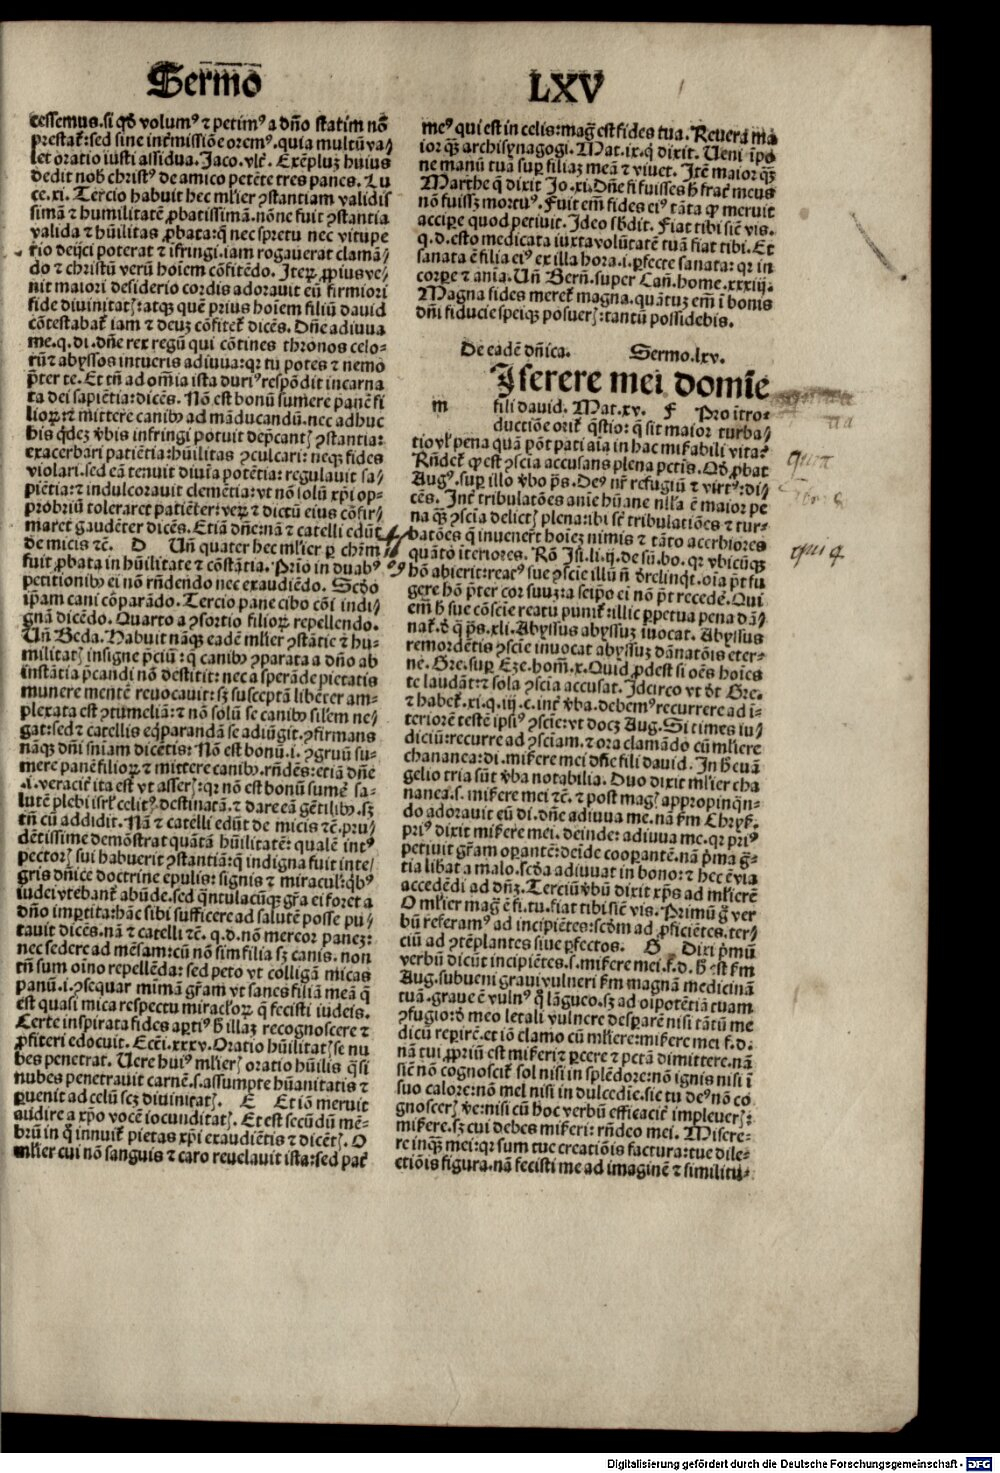 Sermo LXV
cessemus. si qđ volumꝰ ⁊ petimꝰ a dño statim nõ
prestat᷑: sed sine int᷑missiõe oremꝰ. quia multũ va⸗
let oratio iusti assidua. Jaco. vlt᷑. Exẽpluꝫ huius
dedit nob̃ christꝰ de amico petẽte tres panes. Lu
ce. xi. Tercio habuit hec ml'ier ꝯstantiam validis
simã ⁊ humilitatẽ ꝓbatissimã. nõne fuit ꝯstantia
valida ⁊ hũilitas ꝓbata: q̃ nec spretu nec vitupe
rio deijci poterat ⁊ ifringi. iam rogauerat clamã⸗
do ⁊ christũ verũ hoiem cõfitẽdo. Iteꝝ ꝓpius ve⸗
nit maiori desiderio cordis adorauit eũ firmiori
fide diuinitatꝭ: atqꝫ quẽ prius hoiem filiũ dauid
cõtestabat᷑ iam ⁊ deuꝫ cõfitet᷑ dicẽs. Dñe adiuua
me. q. di. dñe rex regũ qui cõtines thronos celo⸗
rũ ⁊ abyssos intueris adiuua: qꝛ tu potes ⁊ nemo
p̃ter te. Et tñ ad om̃ia ista duriꝰ respõdit incarna
ta dei sapiẽtia: dicẽs. Nõ est bonũ sumere panẽ fi
lioꝝ: ⁊ mittere canibꝰ ad mãducandũ. nec adhuc
his q̃deꝫ v̓bis infringi potuit dep̃cantꝭ ꝯstantia:
exacerbari patiẽtia: hũilitas ꝯculcari: neqꝫ fides
violari. sed eã tenuit diuĩa potẽtia: regulauit sa⸗
piẽtia: ⁊ indulcorauit clemẽtia: vt nõ solũ xp̃i op⸗
probriũ toleraret patiẽter: veꝝ ⁊ dictũ eius cõfir⸗
maret gaudẽter dicẽs. Etiã dñe: nã ⁊ catelli edũt
de micis ⁊c̃. D Vñ quater hec ml'ier ꝑ chr̃m
fuit ꝓbata in hũilitate ⁊ cõstãtia. Prĩo in duabꝰ
petitionibꝰ ei nõ rñdendo nec exaudiẽdo. Scd̃o
ip̃am cani cõparãdo. Tercio pane cibo cõi indi⸗
gnã dicẽdo. Quarto a ꝯsortio filioꝝ repellendo.
Vñ Beda. Habuit nãqꝫ eadẽ ml'ier ꝯstãtie ⁊ hu⸗
militatꝭ insigne p̃ciũ: q̃ canibꝰ ꝯparata a dño ab
instãtia p̃candi nõ destitit: nec a sperãde pietatis
munere mentẽ reuocauit: sꝫ susceptã libẽter am⸗
plexata est ꝯtumeliã: ⁊ nõ solũ se canibꝰ sil'em ne⸗
gat: sed ⁊ catellis eq̃parandã se adiũgit. ꝯfirmans
nãqꝫ dñi sniam dicẽtis: Nõ est bonũ. i. ꝯgruũ su⸗
mere panẽ filioꝝ ⁊ mittere canibꝰ. rñdẽs: etiã dñe
.i. veracit᷑ ita est vt asserꝭ: qꝛ nõ est bonũ sumẽ sa⸗
lutẽ plebi isrl' celitꝰ destinatã. ⁊ dare eã gẽtilibꝰ. sꝫ
tñ cũ addidit. Nã ⁊ catelli edũt de micis ⁊c̃. pru⸗
dẽtissime demõstrat quãtã hũilitatẽ: qualẽ intꝰ
pectorꝭ sui habuerit ꝯstantiã: q̃ indigna fuit inte⸗
gris dñice doctrine epulis: signis ⁊ miraculꝭ: q̃bꝰ
iudei vtebant᷑ abũde. sed q̃ntulacũqꝫ gr̃a ei foret a
dño imꝑtita: hãc sibi sufficere ad salutẽ posse pu⸗
tauit dicẽs. nã ⁊ catelli ⁊c̃. q. d. nõ mereor paneꝫ:
nec sedere ad mẽsam: cũ nõ sim filia sꝫ canis. non
tñ sum oĩno repellẽda: sed peto vt colligã micas
panũ. i. ꝯsequar mimã gr̃am vt sanes filiã meã q̃
est quasi mica respectu miracl'oꝝ q̃ fecisti iudeis.
Certe inspirata fides aꝑtiꝰ h̃ illaꝫ recognoscere ⁊
ꝓfiteri edocuit. Eccl̃i. xxxv. Oratio hũilitatꝭ se nu
bes penetrat. Uere huiꝰ ml'ierꝭ oratio hũilis q̃si
nubes penetrauit carnẽ. s. assumpte hũanitatis ⁊
ꝑuenit ad celũ scꝫ diuinitatꝭ. E Et iõ meruit
audire a xp̃o vocẽ iocunditatꝭ. Et est secũdũ mẽ⸗
brũ in q̃ innuit᷑ pietas xp̃i exaudiẽtis ⁊ dicẽtꝭ. O
ml'ier cui nõ sanguis ⁊ caro reuelauit ista: sed pat᷑
meꝰ qui est in celis: mag̃ est fides tua. Reuera ma
ior qꝫ archisynagogi. Mat. ix. q̃ dixit. Ueni ĩpo
ne manũ tuã suꝑ filiaꝫ meã ⁊ viuet. Itẽ maior qꝫ
Marthe q̃ dixit Jo. xi. Dñe si fuisses h̃ frat᷑ meus
nõ fuissꝫ mortuꝰ. Fuit em̃ fides eiꝰ tãta ꝙ meruit
acciꝑe quod petiuit. Ideo sb̃dit. Fiat tibi siẽ vis.
q. d. esto medicata iuxta volũtatẽ tuã fiat tibi. Et
sanata ẽ filia eiꝰ ex illa hora. i. ꝑfecte sanata: qꝛ in
corꝑe ⁊ aĩa. Vñ Berñ. super Cañ. home. xxxiij.
Magna fides meret᷑ magna. quãtuꝫ em̃ ĩ bonis
dñi fiducie speiqꝫ posuerꝭ: tantũ possidebis.
De eadẽ dñica. Sermo. lxv.
m Iserere mei domĩe
fili dauid. Mat. xv. F Pro ĩtro⸗
ductiõe orit᷑ q̃stio: q̃ sit maior turba⸗
tio vl' pena quã põt pati aĩa in hac mis̃abili vita?
Rñdet᷑ ꝙ est ꝯscia accusans plena petĩs. Qđ ꝓbat
Augꝰ. suꝑ illo v̓bo pš. Deꝰ nr̃ refugiũ ⁊ virtꝰ: di⸗
cẽs. Int᷑ tribulatões anie hũane nl'la ẽ maior pe
na qꝫ ꝯscia delictꝭ plena: ibi st̃ tribulatiões ⁊ tur⸗
batões q̃ inuenert̃ hoieꝫ nimis ⁊ tãto acerbiores
quãto iteriores. Rõ Isi. li. ij. de sũ. bo. qꝛ vbicũqꝫ
hõ abierit: reatꝰ sue ꝯscie illũ ñ d̓relinq̃t. oĩa p̃t fu
gere hõ p̃ter cor suuꝫ: a seip̃o ei nõ p̃t recedẽ. Qui
em̃ h̃ sue cõscie reatu punit᷑: illic ꝑpetua pena dã⸗
nat᷑. đ q̃ pš. xli. Abyssus abyssuꝫ iuocat. Abyssus
remordẽtis ꝯscie inuocat abyssuꝫ dãnatõis eter⸗
ne. Gre. suꝑ Eze. hom̃. x. Quid ꝓdest si oẽs hoies
te laudãt: ⁊ sola ꝯscia accusat. Idcirco vt đt Gre.
⁊ habet᷑. xi. q. iij. c. int᷑ v̓ba. debemꝰ recurrere ad ĩ⸗
teriorẽ testẽ ip̃siꝰ ꝯscie: vt docꝫ Aug. Si times iu⸗
diciũ: recurre ad ꝯsciam. ⁊ ora clamãdo cũ ml'iere
chananea: di. mis̃ere mei dñe fili dauid. In h̃ euã
gelio tria sũt v̓ba notabilia. Duo dixit ml'ier cha
nanea. s. mis̃ere mei ⁊c̃. ⁊ post magꝭ appropinq̃n⸗
do adorauit eũ di. dñe adiuua me. nã s̃m Chrys̃.
priꝰ dixit mis̃ere mei. deinde: adiuua me. qꝛ priꝰ
petiuit gr̃am oꝑantẽ: deĩde cooꝑantẽ. nã p̃ma g̃⸗
tia lib̃at a malo. scđa adiuuat in bono: ⁊ hec ẽ via
accedẽdi ad dñꝫ. Terciũ v̓bũ dixit xp̃s ad ml'ierẽ
O ml'ier mag̃ ẽ fi. tu. fiat tibi siẽ vis. Primũ g̃ ver
bũ referamꝰ ad incipiẽtes: scđm ad ꝓficiẽtes. ter⸗
ciũ ad ꝯtẽplantes siue ꝑfectos. G Dixi p̃mũ
verbũ dicũt incipiẽtes. s. mis̃ere mei. f. d. h̃ est s̃m
Aug. subueni graui vulneri s̃m magnam medicinã
tuã. graue ẽ vulnꝰ q̃ lãgueo. sꝫ ad oĩpotẽtiã tuam
ꝯfugio: đ meo letali vulnere desꝑarẽ nisi tãtũ me
dicũ reꝑirẽ. et iõ clamo cũ ml'iere: mis̃ere mei f. d.
nã tui ꝓpriũ est mis̃eri ⁊ ꝑcere ⁊ pctã dimittere. nã
siẽ nõ cognoscit᷑ sol nisi in splẽdore: nõ ignis nisi ĩ
suo calore: nõ mel nisi in dulcedĩe. sic tu deꝰ nõ co
gnoscerꝭ ve: nisi cũ hoc verbũ efficacit᷑ impleuerꝭ:
mis̃ere. sꝫ cui debes mis̃eri: rñdeo mei. Misere⸗
re inqꝫ mei: qꝛ sum tue creatiõis factura: tue dile⸗
ctiõis figura. nã fecisti me ad imaginẽ ⁊ similitu⸗
Digitalisierung gefördert durch die Deutsche Forschungsgemeinschaft - DFG